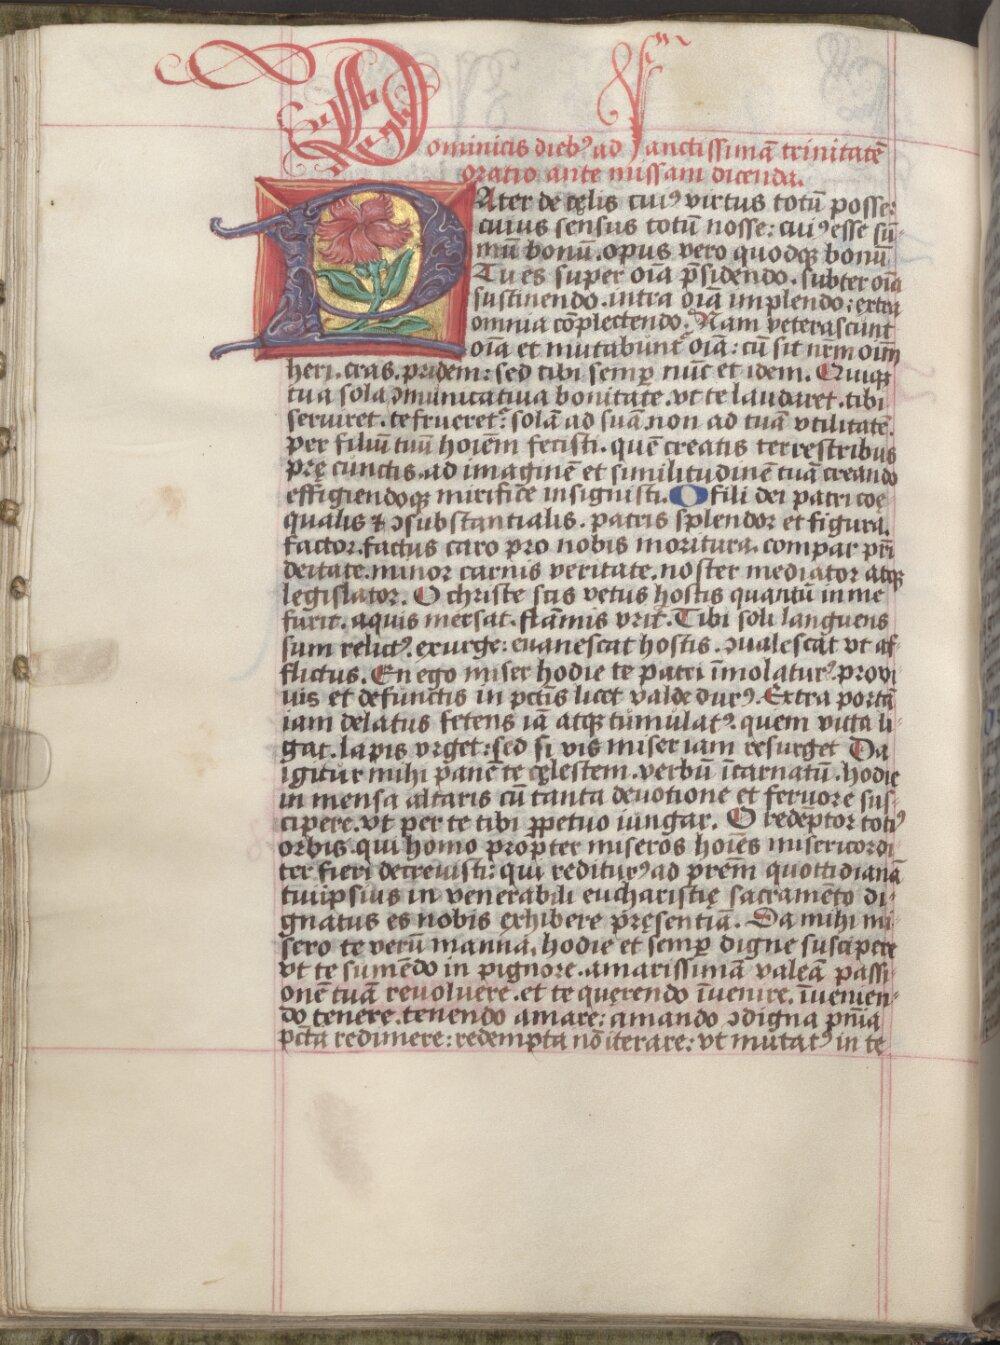 Dominicis dieb⁹ ad sanctissimā trinitatē
oratio ante missam dicenda.
PAter de cęlis cui⁹ virtus totū posse:
cuius sensus totū nosse: cui⁹ esse sū-
mū bonū. opus vero quodqꝫ bonū
Tu es super oīa p̄sidendo. subter oīa
sustinendo. intra oīa implendo: extra
omnia cōplectendo. Nam veterascunt
oīa et mutabunt᷑ oīa: cū sit nr̄m oīm
heri. cras. pridem: sed tibi semꝑ nūc et idem. Quiqꝫ
tua sola ↄmunicatiua bonitate. vt te laudaret. tibi
seruiret. te frueret᷑: solā ad suā non ad tuā vtilitatē.
per filiū tuū hoīem fecisti. quē creatis terrestribus
prę cunctis ad imaginē et similitudinē tuā creando
effigiendoqꝫ mirifice insignisti. O fili dei patri coę
qualis & ↄsubstantialis. patris splendor et figura.
factor. factus caro pro nobis moritura. compar pr̄i
deitate. minor carnis veritate. noster mediator atqꝫ
legislator. O christe scis vetus hostis quantū in me
furit. aquis mersat. flāmis vrit. Tibi soli languens
sum relict⁹. exurge: euanescat hostis. ↄualescat vt af-
flictus. En ego miser hodie te patri īmolatur⁹. pro vi
uis et defunctis in pctīs licet valde dur⁹. Extra portā
iam delatus fetens iā atqꝫ tumulat⁹. quem vitta li-
gat. lapis vrget: sed si vis miser iam resurget Da
igitur mihi panē te cęlestem. verbū īcarnatū. hodie
in mensa altaris cū tanta deuotione et feruore sus-
cipere. vt per te tibi ꝑpetuo iungar. O redēptor toti⁹
orbis. qui homo propter miseros hoīes misericordi
ter fieri decreuisti: qui reditur⁹ ad prēm quottidianā
tuiipsius in venerabili eucharistię sacramēto di-
gnatus es nobis exhibere pręsentiā. Da mihi mi-
sero te verū manna. hodie et semꝑ digne suscipere
vt te sumēdo in pignore. amarissimā valeā passi-
onē tuā reuoluere. et te querendo īuenire. īuenien-
do tenere. tenendo amare: amando ↄdigna pn̄ia
pctā redimere: redempta nō iterare: vt mutat⁹ in te